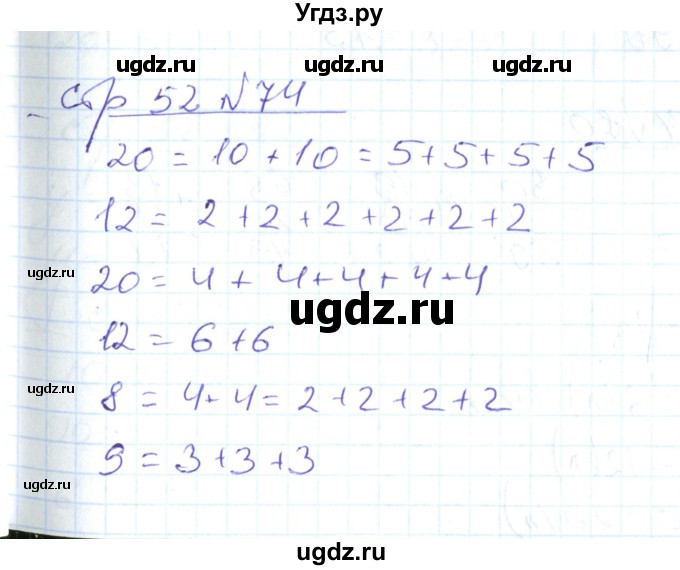 Угдз.ру
ugdz.ru ugdz.ru
стр 52 №74
20 = 10 + 10 = 5 + 5 + 5 + 5
ugdz.ru ugdz.ru
12 = 2 + 2 + 2 + 2 + 2 + 2
ugdz.ru
20 = 4 + 4 + 4 + 4 + 4
ugdz.ru
12 = 6 + 6
ugdz.ru
8 = 4 + 4 = 2 + 2 + 2 + 2
9 = 3 + 3 + 3
ugdz.ru
ugdz.ru